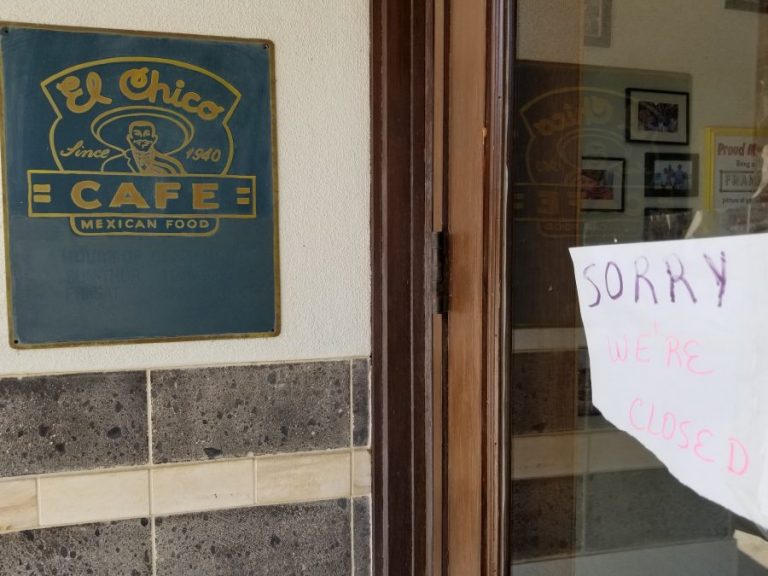 El Chico
Since 1940
= CAFE =
MEXICAN FOOD
SORRY
WE'RE
CLOSED